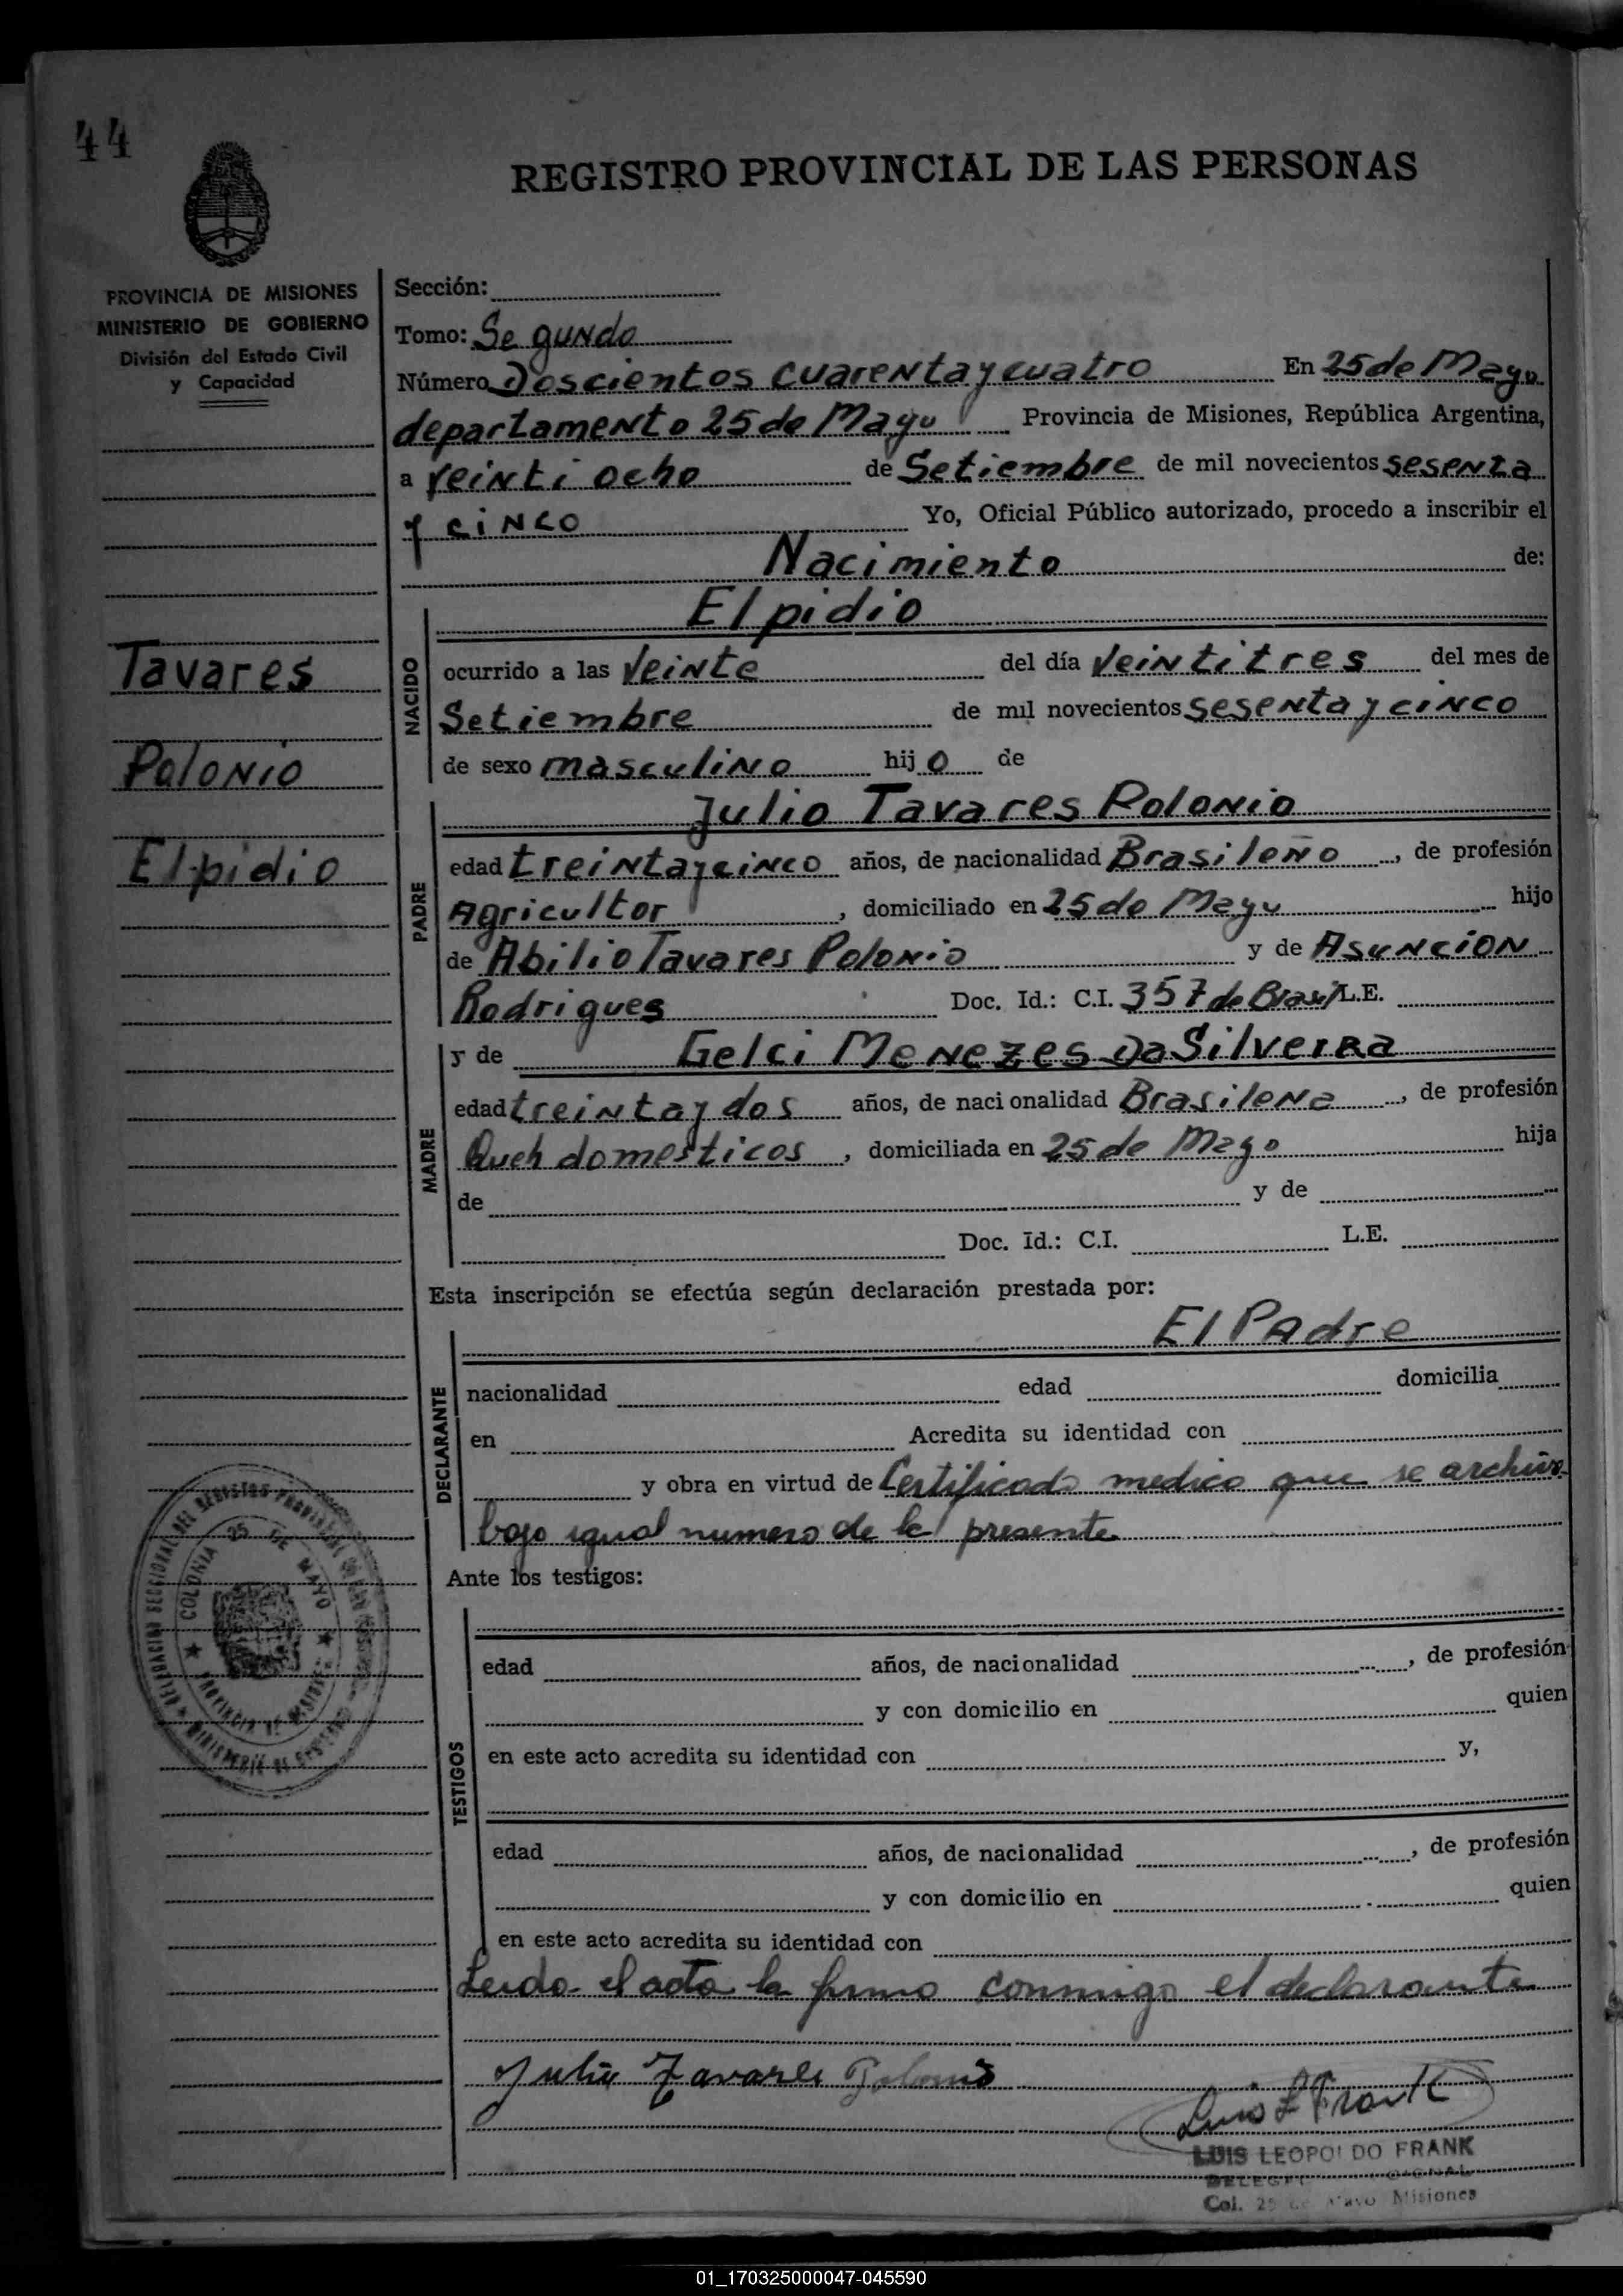 44
REGISTRO PROVINCIAL DE LAS PERSONAS
PROVINCIA DE MISIONES
MINISTERIO DE GOBIERNO
División del Estado Civil
y Capacidad
Tavares
Polonio
Elpidio
Sección:
Tomo: Segundo
Número Doscientos cuarenta y cuatro En 25 de Mayo
departamento 25 de Mayo Provincia de Misiones, República Argentina,
a veinti ocho de Setiembre de mil novecientos sesenta
y cinco Yo, Oficial Público autorizado, procedo a inscribir el
Nacimiento de:
NACIDO
Elpidio
ocurrido a las veinte del día veintitres del mes de
Setiembre de mil novecientos sesenta y cinco
de sexo masculino hijo de
PADRE
Julio Tavares Polonio
edad treinta y cinco años, de nacionalidad Brasileño, de profesión
Agricultor, domiciliado en 25 de Mayo hijo
de Abilio Tavares Polonio y de Asuncion
Rodrigues Doc. Id.: C.I. 357 de Brasil L.E.
MADRE
y de Gelci Menezes Da Silveira
edad treinta y dos años, de nacionalidad Brasileña, de profesión
Queh domesticos, domiciliada en 25 de Mayo hija
de y de
Doc. Id.: C.I. L.E.
Esta inscripción se efectúa según declaración prestada por:
DECLARANTE
El Padre
nacionalidad edad domicilia
en Acredita su identidad con
y obra en virtud de Certificado medico que se archiva
bajo igual numero de la presente
Ante los testigos:
TESTIGOS
edad años, de nacionalidad , de profesión
y con domicilio en quien
en este acto acredita su identidad con y,
edad años, de nacionalidad , de profesión
y con domicilio en quien
en este acto acredita su identidad con
Leida el acta la firma conmigo el declarante
Julio Tavares Polonio
Luis L Frank
LUIS LEOPOLDO FRANK
Col. 25 de Mayo Misiones
COLONIA 25 DE MAYO
PROVINCIA DE MISIONES
01_170325000047-045590